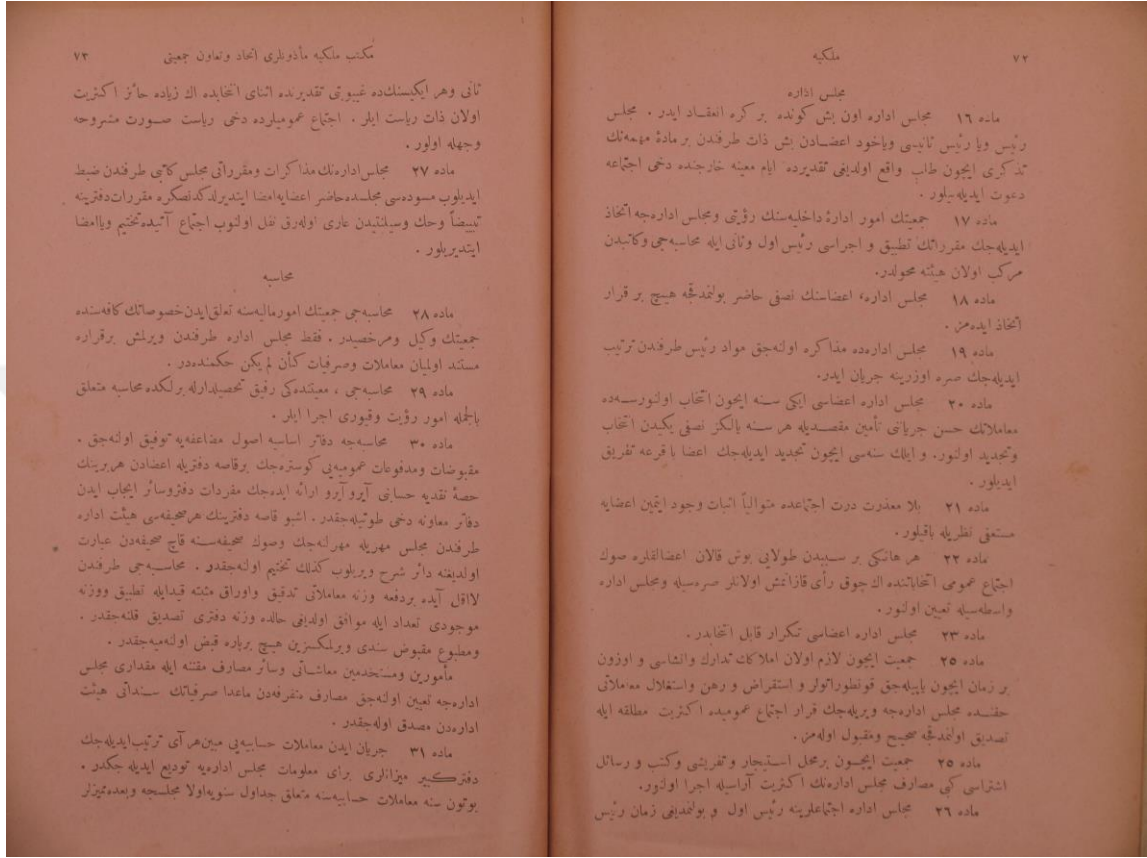 ٧٢
ملكيه
مجلس اداره
ماده ١٦ مجلس اداره اون بش كونده بر كره انعقاد ايدر . مجلس
رئيس ويا رئيس ثانيسى وياخود اعضادن بش ذات طرفندن بر مادۀ مهمه‌نك
تذكرى ايچون طلب واقع اولديغى تقديرده ايام معينه خارجنده دخى اجتماعه
دعوت ايديله‌بيلور .
ماده ١٧ جمعيتك امور ادارۀ داخليه‌سنك رؤيتى ومجلس اداره‌جه اتخاذ
ايديله‌جك مقرراتك تطبيق و اجراسى رئيس اول وثانى ايله محاسبه‌جى وكاتبدن
مركب اولان هيئته محولدر.
ماده ١٨ مجلس اداره، اعضاسنك نصفى حاضر بولنمدقجه هيچ بر قرار
اتخاذ ايده‌مز .
ماده ١٩ مجلس اداره‌ده مذاكره اولنه‌جق مواد رئيس طرفندن ترتيب
ايديله‌جك صره اوزرينه جريان ايدر.
ماده ٢٠ مجلس اداره اعضاسى ايكى سنه ايچون انتخاب اولنورسه‌ده
معاملاتك حسن جريانى تأمين مقصديله هر سنه يالكز نصفى يكيدن انتخاب
وتجديد اولنور. و ايلك سنه‌سى ايچون تجديد ايديله‌جك اعضا با قرعه تفريق
ايديلور .
ماده ٢١ بلا معذرت درت اجتماعده متوالياً اثبات وجود ايتمين اعضايه
مستعفى نظريله باقيلور .
ماده ٢٢ هر هانكى بر سببدن طولايى بوش قالان اعضالقلره صوك
اجتماع عمومى انتخاباتنده اك چوق رأى قازانمش اولانلر صره‌سيله ومجلس اداره
واسطه‌سيله تعيين اولنور .
ماده ٢٣ مجلس اداره اعضاسى تكرار قابل انتخابدر .
ماده ٢٥ جمعيت ايچون لازم اولان املاكك تدارك وانشاسى و اوزون
بر زمان ايچون ياپيله‌جق قونطوراتولر و استقراض و رهن واستغلال معاملاتى
حقنده مجلس اداره‌جه ويريله‌جك قرار اجتماع عموميده اكثريت مطلقه ايله
تصديق اولنمدقجه صحيح ومقبول اوله‌مز .
ماده ٢٥ جمعيت ايچون برمحل استيجار و تفريشى وكتب و رسائل
اشتراسى كبى مصارف مجلس اداره‌نك اكثريت آراسيله اجرا اولنور.
ماده ٢٦ مجلس اداره اجتماعلرينه رئيس اول و بولنمديغى زمان رئيس
مكتب ملكيه مأذونلرى اتحاد وتعاون جمعيتى
٧٣
ثانى وهر ايكيسنك‌ده غيبوبتى تقديرنده اثناى انتخابده اك زياده حائز اكثريت
اولان ذات رياست ايلر . اجتماع عموميلرده دخى رياست صورت مشروحه
وجهله اولور .
ماده ٢٧ مجلس اداره‌نك مذاكرات ومقرراتى مجلس كاتبى طرفندن ضبط
ايديلوب مسوده‌سى مجلسده حاضر اعضايه امضا ايتديرلدكدنصكره مقررات دفترينه
تبييضاً وحك وسيلنتيدن عارى اوله‌رق نقل اولنوب اجتماع آتيده تختيم وياامضا
ايتديريلور .
محاسبه
ماده ٢٨ محاسبه‌جى جمعيتك امور ماليه‌سنه تعلق ايدن خصوصاتك كافه‌سنده
جمعيتك وكيل ومرخصيدر . فقط مجلس اداره طرفندن ويرلمش برقراره
مستند اولميان معاملات وصرفيات كأن لم يكن حكمنده‌در .
ماده ٢٩ محاسبه‌جى ، معيتنده‌كى رفيق تحصيلدارله برلكده محاسبه متعلق
بالجمله امور رؤيت وقيودى اجرا ايلر .
ماده ٣٠ محاسبه‌جه دفاتر اساسيه اصول مضاعفه‌يه توفيق اولنه‌جق .
مقبوضات ومدفوعات عموميه‌يى كوستره‌جك برقاصه دفتريله اعضادن هربرينك
حصۀ نقديه حسابنى آيرو آيرو ارائه ايده‌جك مفردات دفتروسائر ايجاب ايدن
دفاتر معاونه دخى طوتيله‌جقدر . اشبو قاصه دفترينك هرصحيفه‌سى هيئت اداره
طرفندن مجلس مهريله مهرلنه‌جك وصوك صحيفه‌سنه قاچ صحيفه‌دن عبارت
اولديغنه دائر شرح ويريلوب كذلك تختيم اولنه‌جقدر . محاسبه‌جى طرفندن
لااقل آيده بردفعه وزنه معاملاتى تدقيق واوراق مثبته قيدايله تطبيق ووزنه
موجودى تعداد ايله موافق اولديغى حالده وزنه دفترى تصديق قلنه‌جقدر .
ومطبوع مقبوض سندى ويرلمكسزين هيچ برپاره قبض اولنه‌ميه‌جقدر .
مأمورين ومستخدمين معاشاتى وسائر مصارف مقننه ايله مقدارى مجلس
اداره‌جه تعيين اولنه‌جق مصارف متفرقه‌دن ماعدا صرفياتك سنداتى هيئت
اداره‌دن مصدق اوله‌جقدر .
ماده ٣١ جريان ايدن معاملات حسابيه‌يى مبين هر آى ترتيب ايديله‌جك
دفتركبير ميزانلرى براى معلومات مجلس اداره‌يه توديع ايديله جكدر .
بوتون سنه معاملات حسابيه‌سنه متعلق جداول سنويه اولا مجلسجه وبعده مميزلر